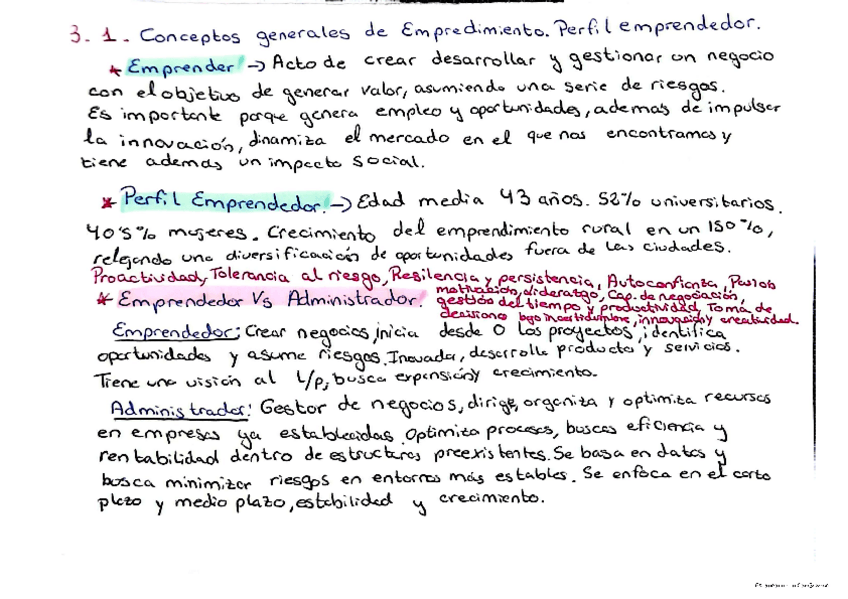 3.1. Conceptos generales de Empredimiento. Perfil emprendedor.
* Emprender → Acto de crear desarrollar y gestionar un negocio
con el objetivo de generar valor, asumiendo una serie de riesgos.
Es importante porque genera empleo y oportunidades, ademas de impulser
la innovación, dinamiza el mercado en el que nos encontramos y
tiene ademas un impacto social.
* Perfil Emprendedor. → Edad media 43 años. 52% universitarios.
40's% mujeres. Crecimiento del emprendimiento rural en un 150%,
relejando una diversificación de oportunidades fuera de las ciudades.
Proactividad, Tolerancia al riesgo, Resilencia y persistencia, Autoconfianza,
motivación, liderazgo, Cap. de negociación,
* Emprendedor Vs Administrador.
gestión del tiempo y productividad, Toma de
decisiono bajo incertidumbre, innovación y creatividad.
Emprendedor: Crear negocios, inicia desde 0 los proyectos, identifica
oportunidades y asume riesgos. Inovada, desarrolla producto y servicios.
Tiene una visión al L/p, busca expensión y crecimiento.
Administrador: Gestor de negocios, dirige, organiza y optimiza recursos
en empresas ya establecidas. Optimiza procesos, buscas eficiencia y
rentabilidad dentro de estructuras preexistentes. Se basa en datos y
busca minimizar riesgos en entornos más estables. Se enfoca en el corto
plazo y medio plazo, estabilidad y crecimiento.